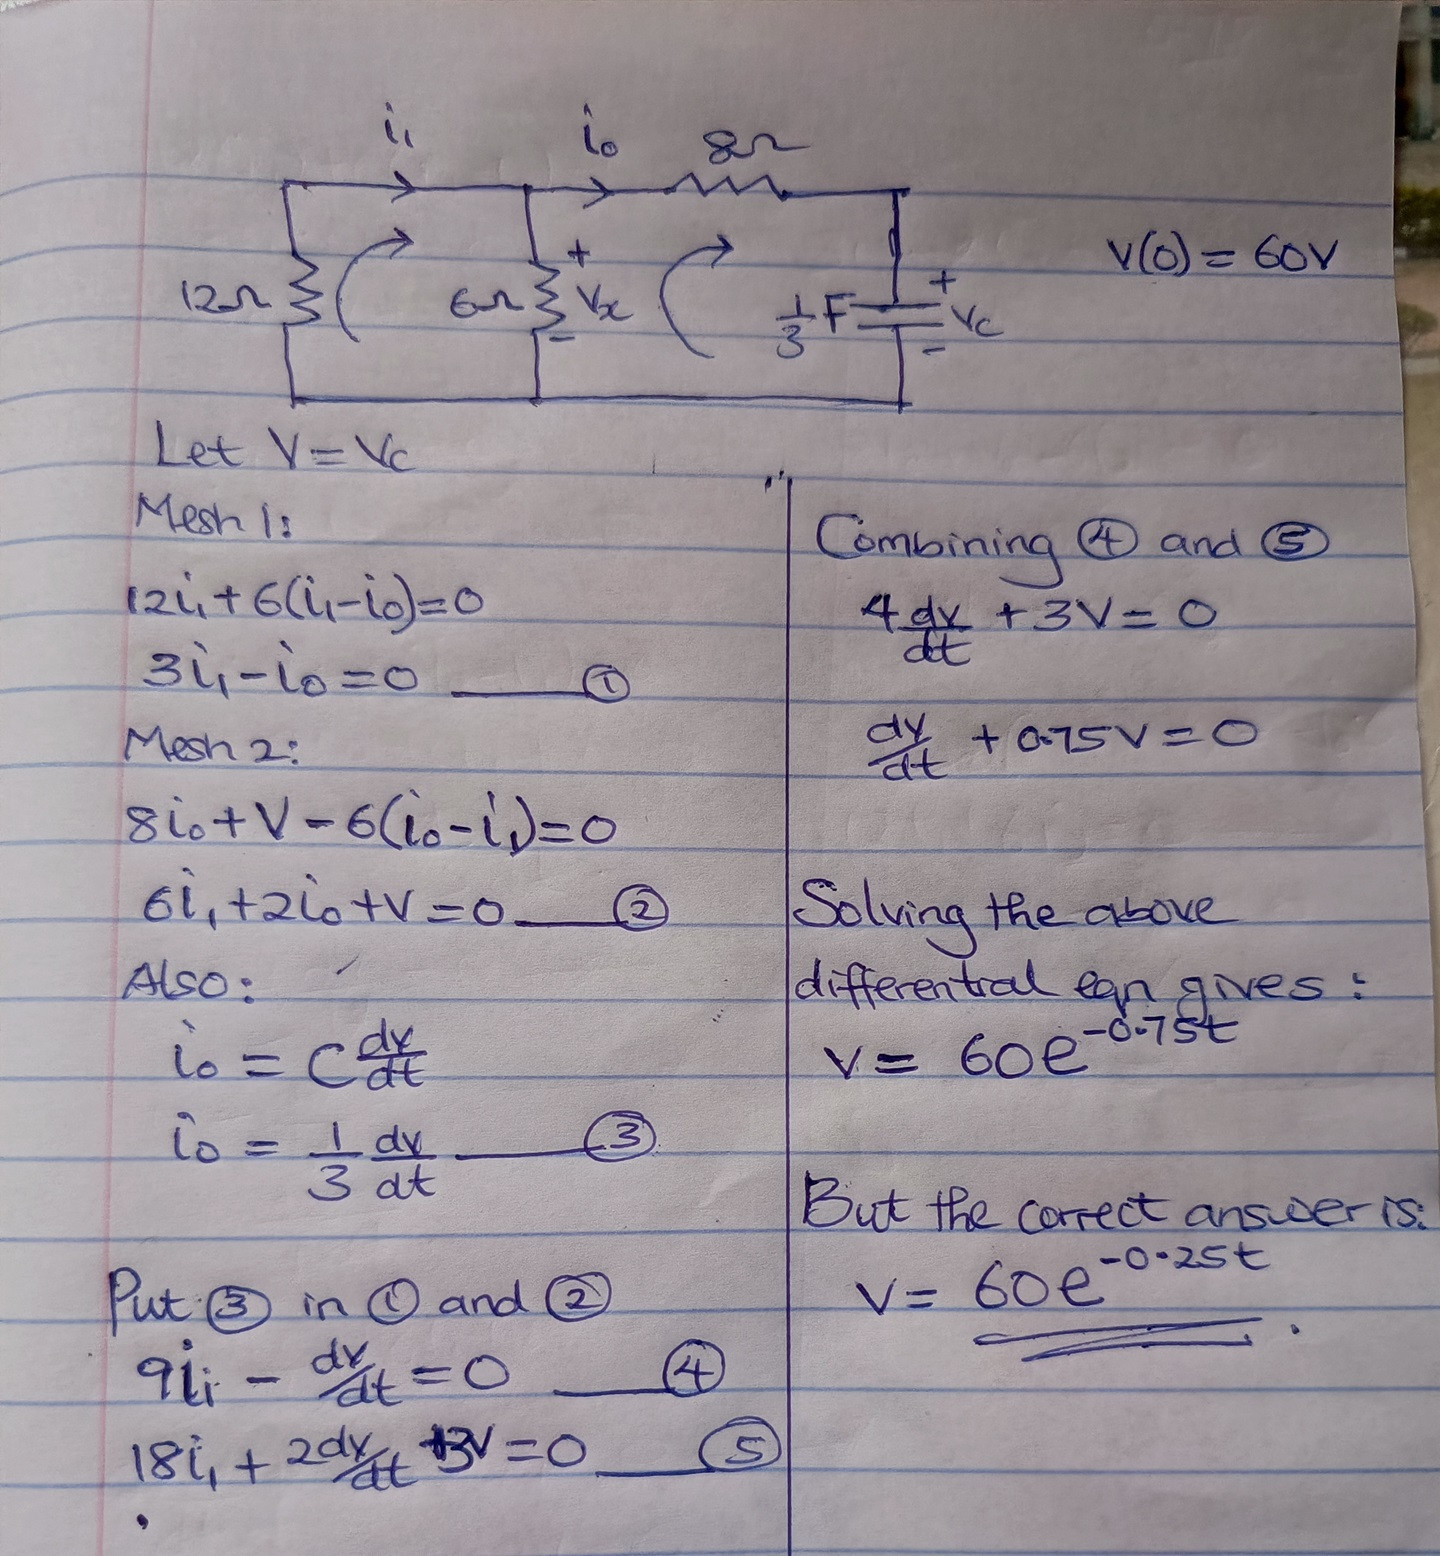 i₁ i₀ 8Ω
12Ω 6Ω + Vx - 1/3 F + Vc - V(0) = 60V
Let V = Vc
Mesh 1:
12i₁ + 6(i₁ - i₀) = 0
3i₁ - i₀ = 0 ①
Mesh 2:
8i₀ + V - 6(i₀ - i₁) = 0
6i₁ + 2i₀ + V = 0 ②
Also:
i₀ = C dv/dt
i₀ = 1/3 dv/dt ③
Put ③ in ① and ②
9i₁ - dv/dt = 0 ④
18i₁ + 2dv/dt + 3V = 0 ⑤
Combining ④ and ⑤
4 dv/dt + 3V = 0
dv/dt + 0.75V = 0
Solving the above
differential eqn gives:
V = 60e^-0.75t
But the correct answer is:
V = 60e^-0.25t.